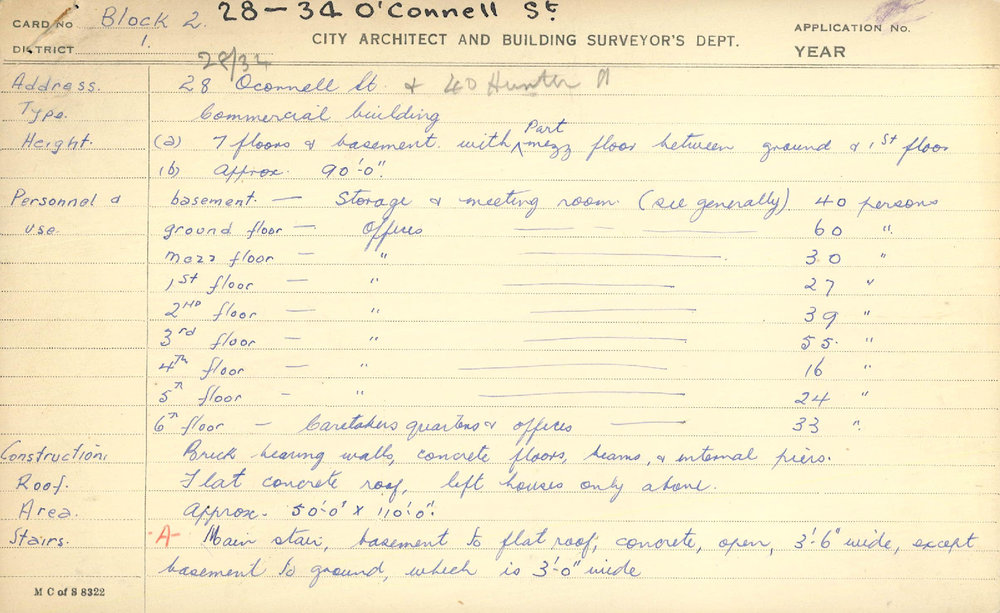 CARD No Block 2. 28-34 O'Connell St. APPLICATION No.
DISTRICT 1. CITY ARCHITECT AND BUILDING SURVEYOR'S DEPT. YEAR
28/34
Address. 28 Oconnell St. & 40 Hunter St
Type. Commercial building
Height. (a) 7 floors & basement. with Part mezz floor between ground & 1st floor
(b) approx. 90'-0".
Personnel & basement. — Storage & meeting room. (see generally). 40 persons
use. ground floor — Offices — - — 60 "
mezz floor — " — 30 "
1st floor — " — 27 "
2ND floor — " — 39 "
3rd floor — " — 55. "
4th floor — " — 16 "
5th floor — " — 24 "
6th floor — Caretakers quarters & offices — 33 "
Construction. Brick bearing walls, concrete floors, beams, & internal piers.
Roof. Flat concrete roof, lift houses only above.
Area. approx. 50'-0" x 110'-0".
Stairs. A- Main stair, basement to flat roof, concrete, open, 3'-6" wide, except
basement to ground, which is 3'-0" wide
M C of S 8322